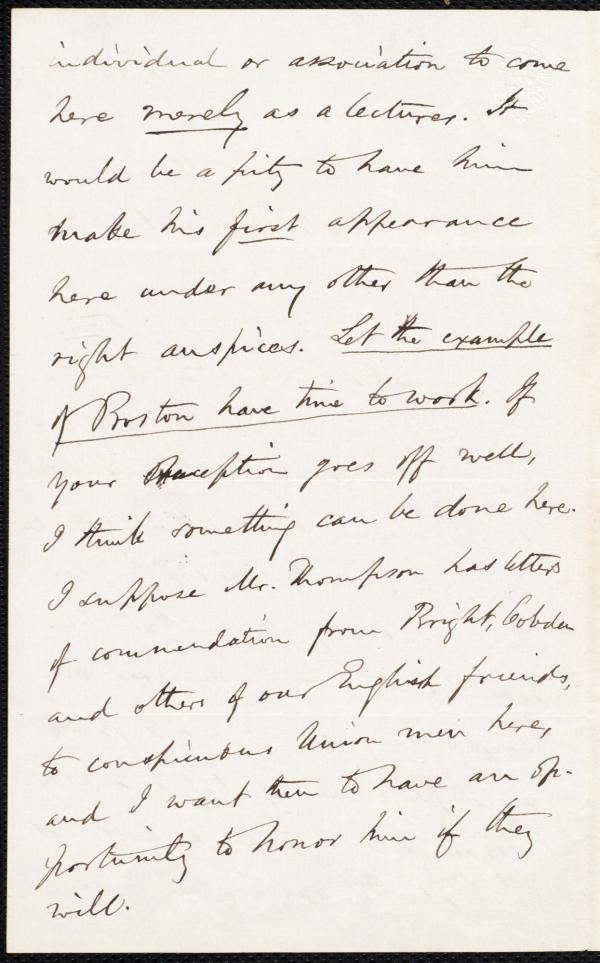 individual or association to come
here merely as a lecturer. It
would be a pity to have him
make his first appearance
here under any other than the
right auspices. Let the example
of Boston have time to work. If
your Reception goes off well,
I think something can be done here.
I suppose Mr. Thompson has letters
of commendation from Bright, Cobden
and others of our English friends,
to conspicuous Union men here,
and I want them to have an op-
portunity to honor him if they
will.